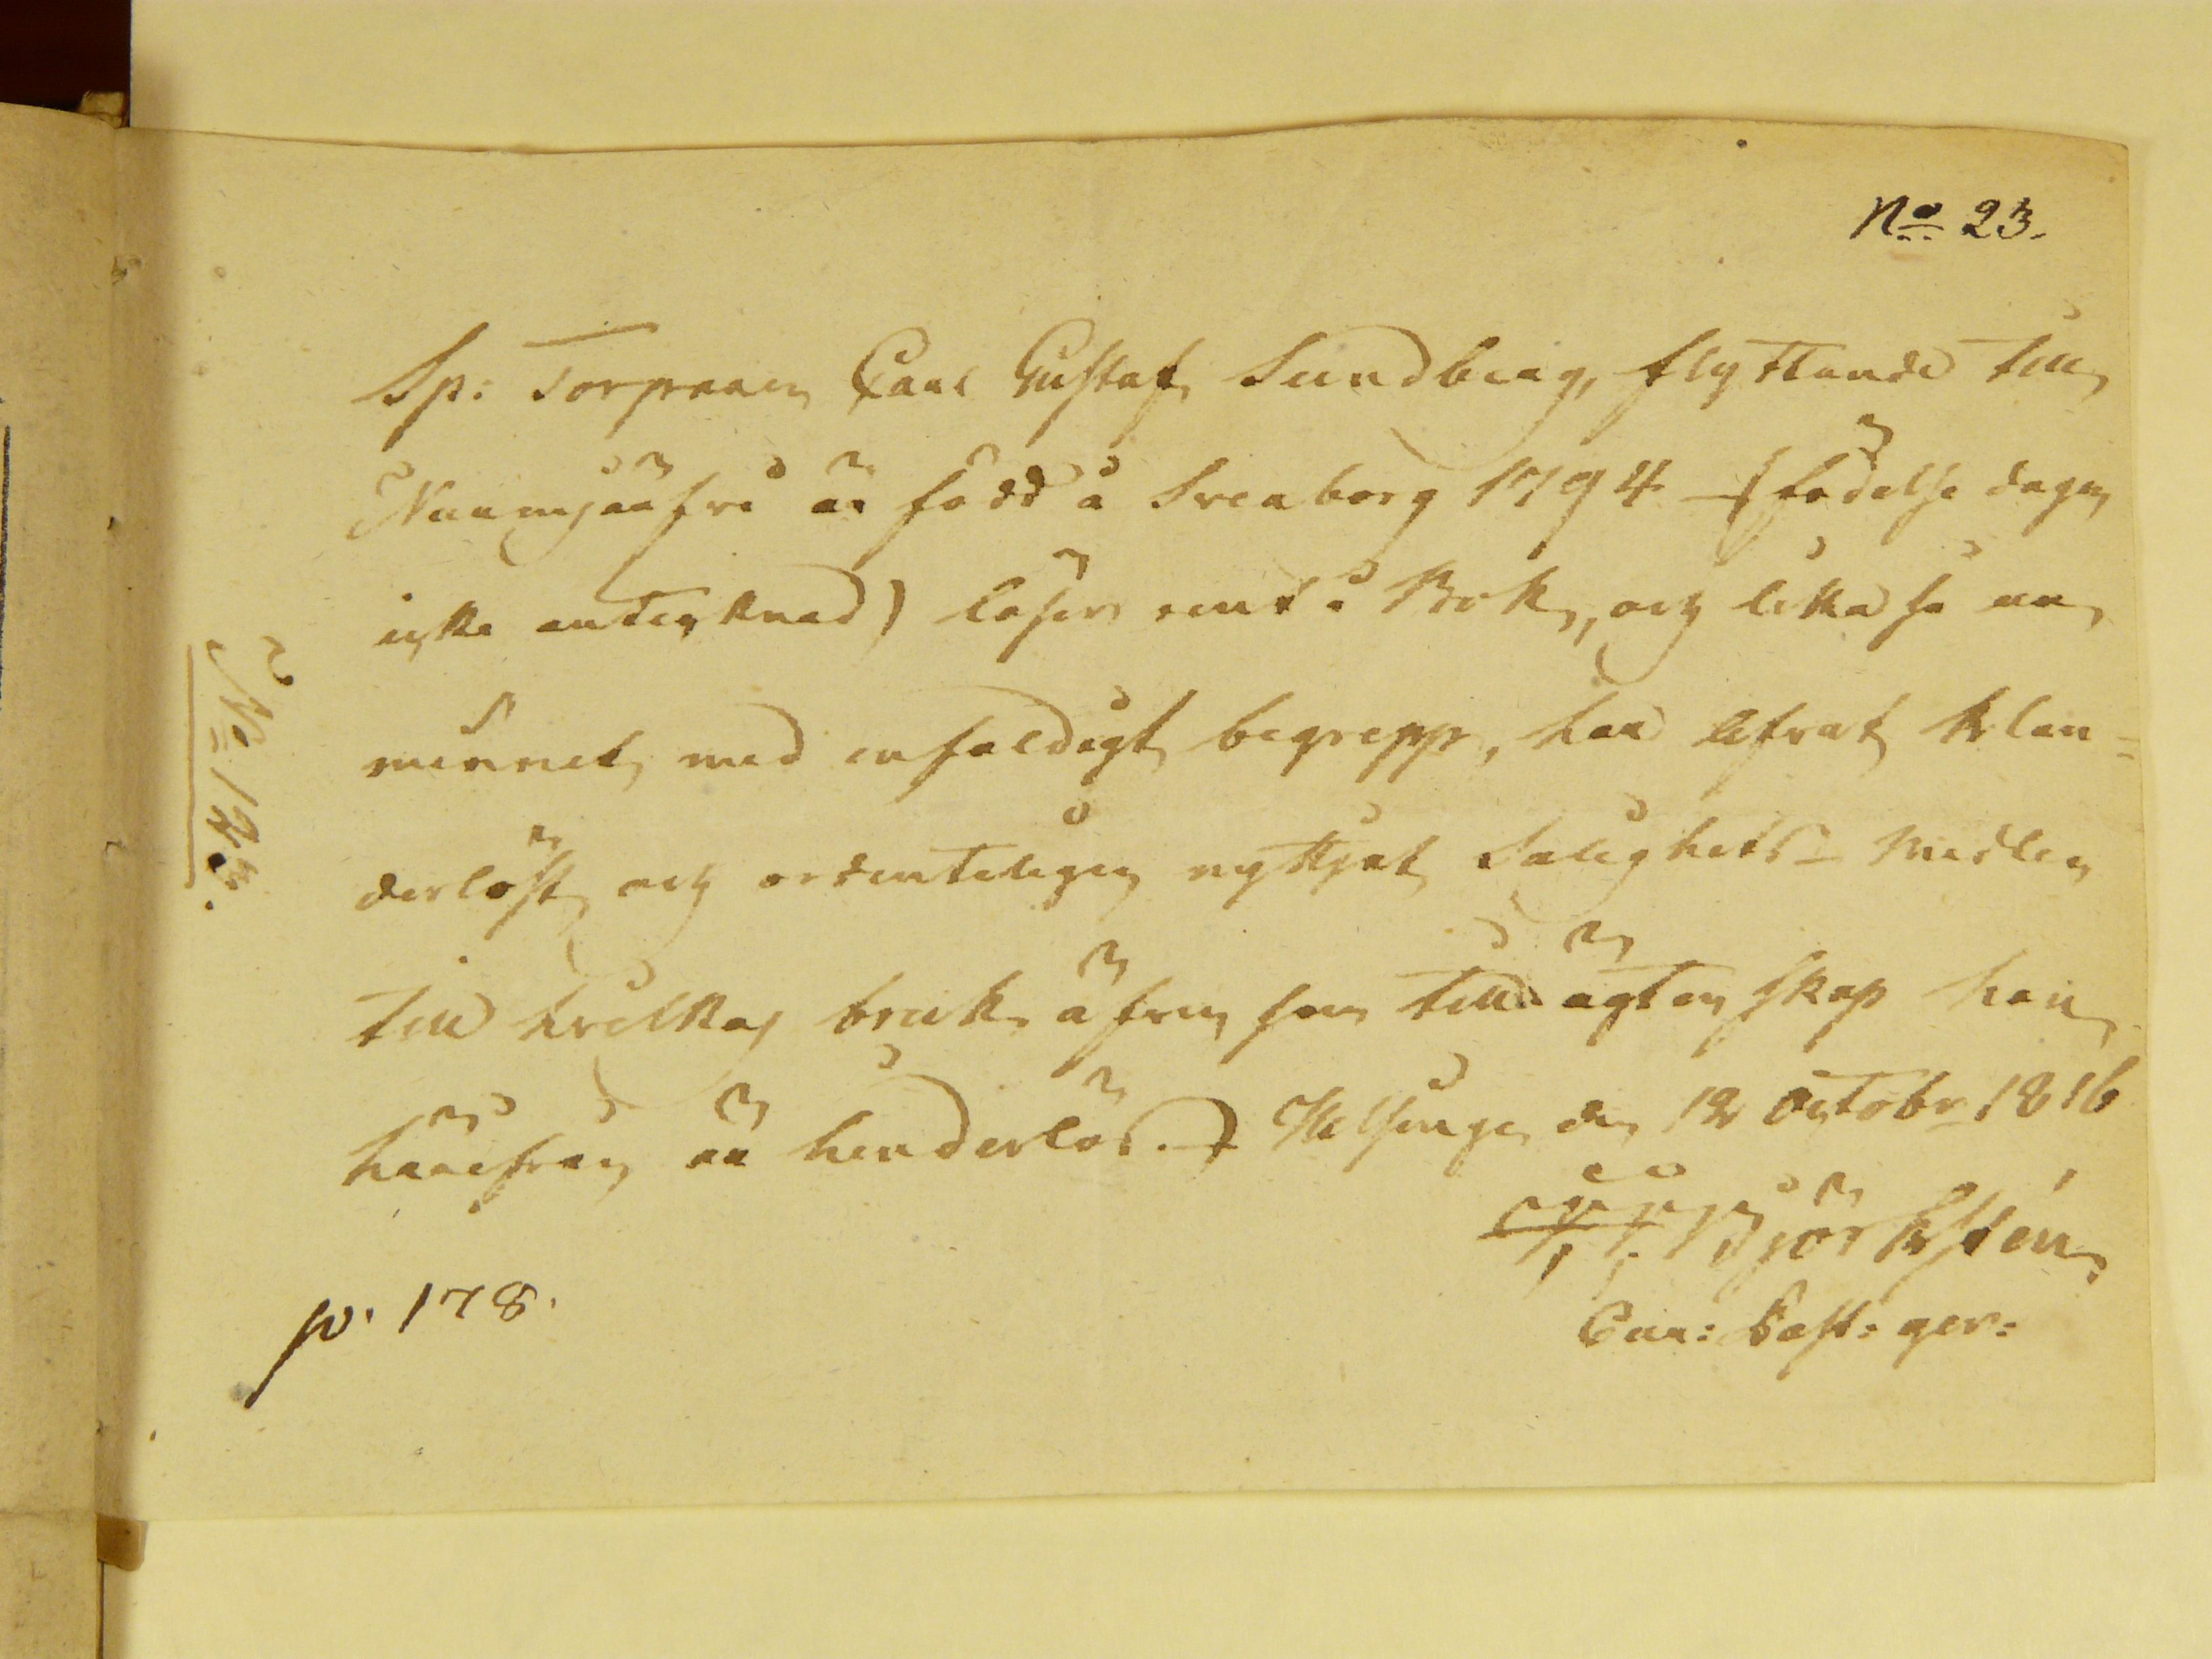 No 23.
Sp: Torparen Carl Gustaf Sundberg, flyttande till
Nurmijärfvi är född å Sveaborg 1794 - (födelse dagen
icke antecknad) läser rent i Bok, och lika så ur
minnet, med enfaldigt begrepp, har lefvat klan-
derlöst, och ordenteligen nyttjat Salighets-Medlen
till hvilkas bruk äfven som till ägtenskap han
härifrån är hinderlös. - Helsinge den 12 Octobr 1816
Björkstén
Cur: Past: ger:
p. 178.